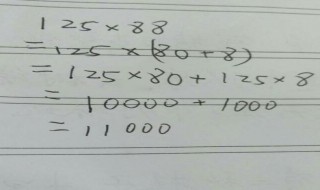 125×88
=125×(80+8)
=125×80+125×8
=10000+1000
=11000